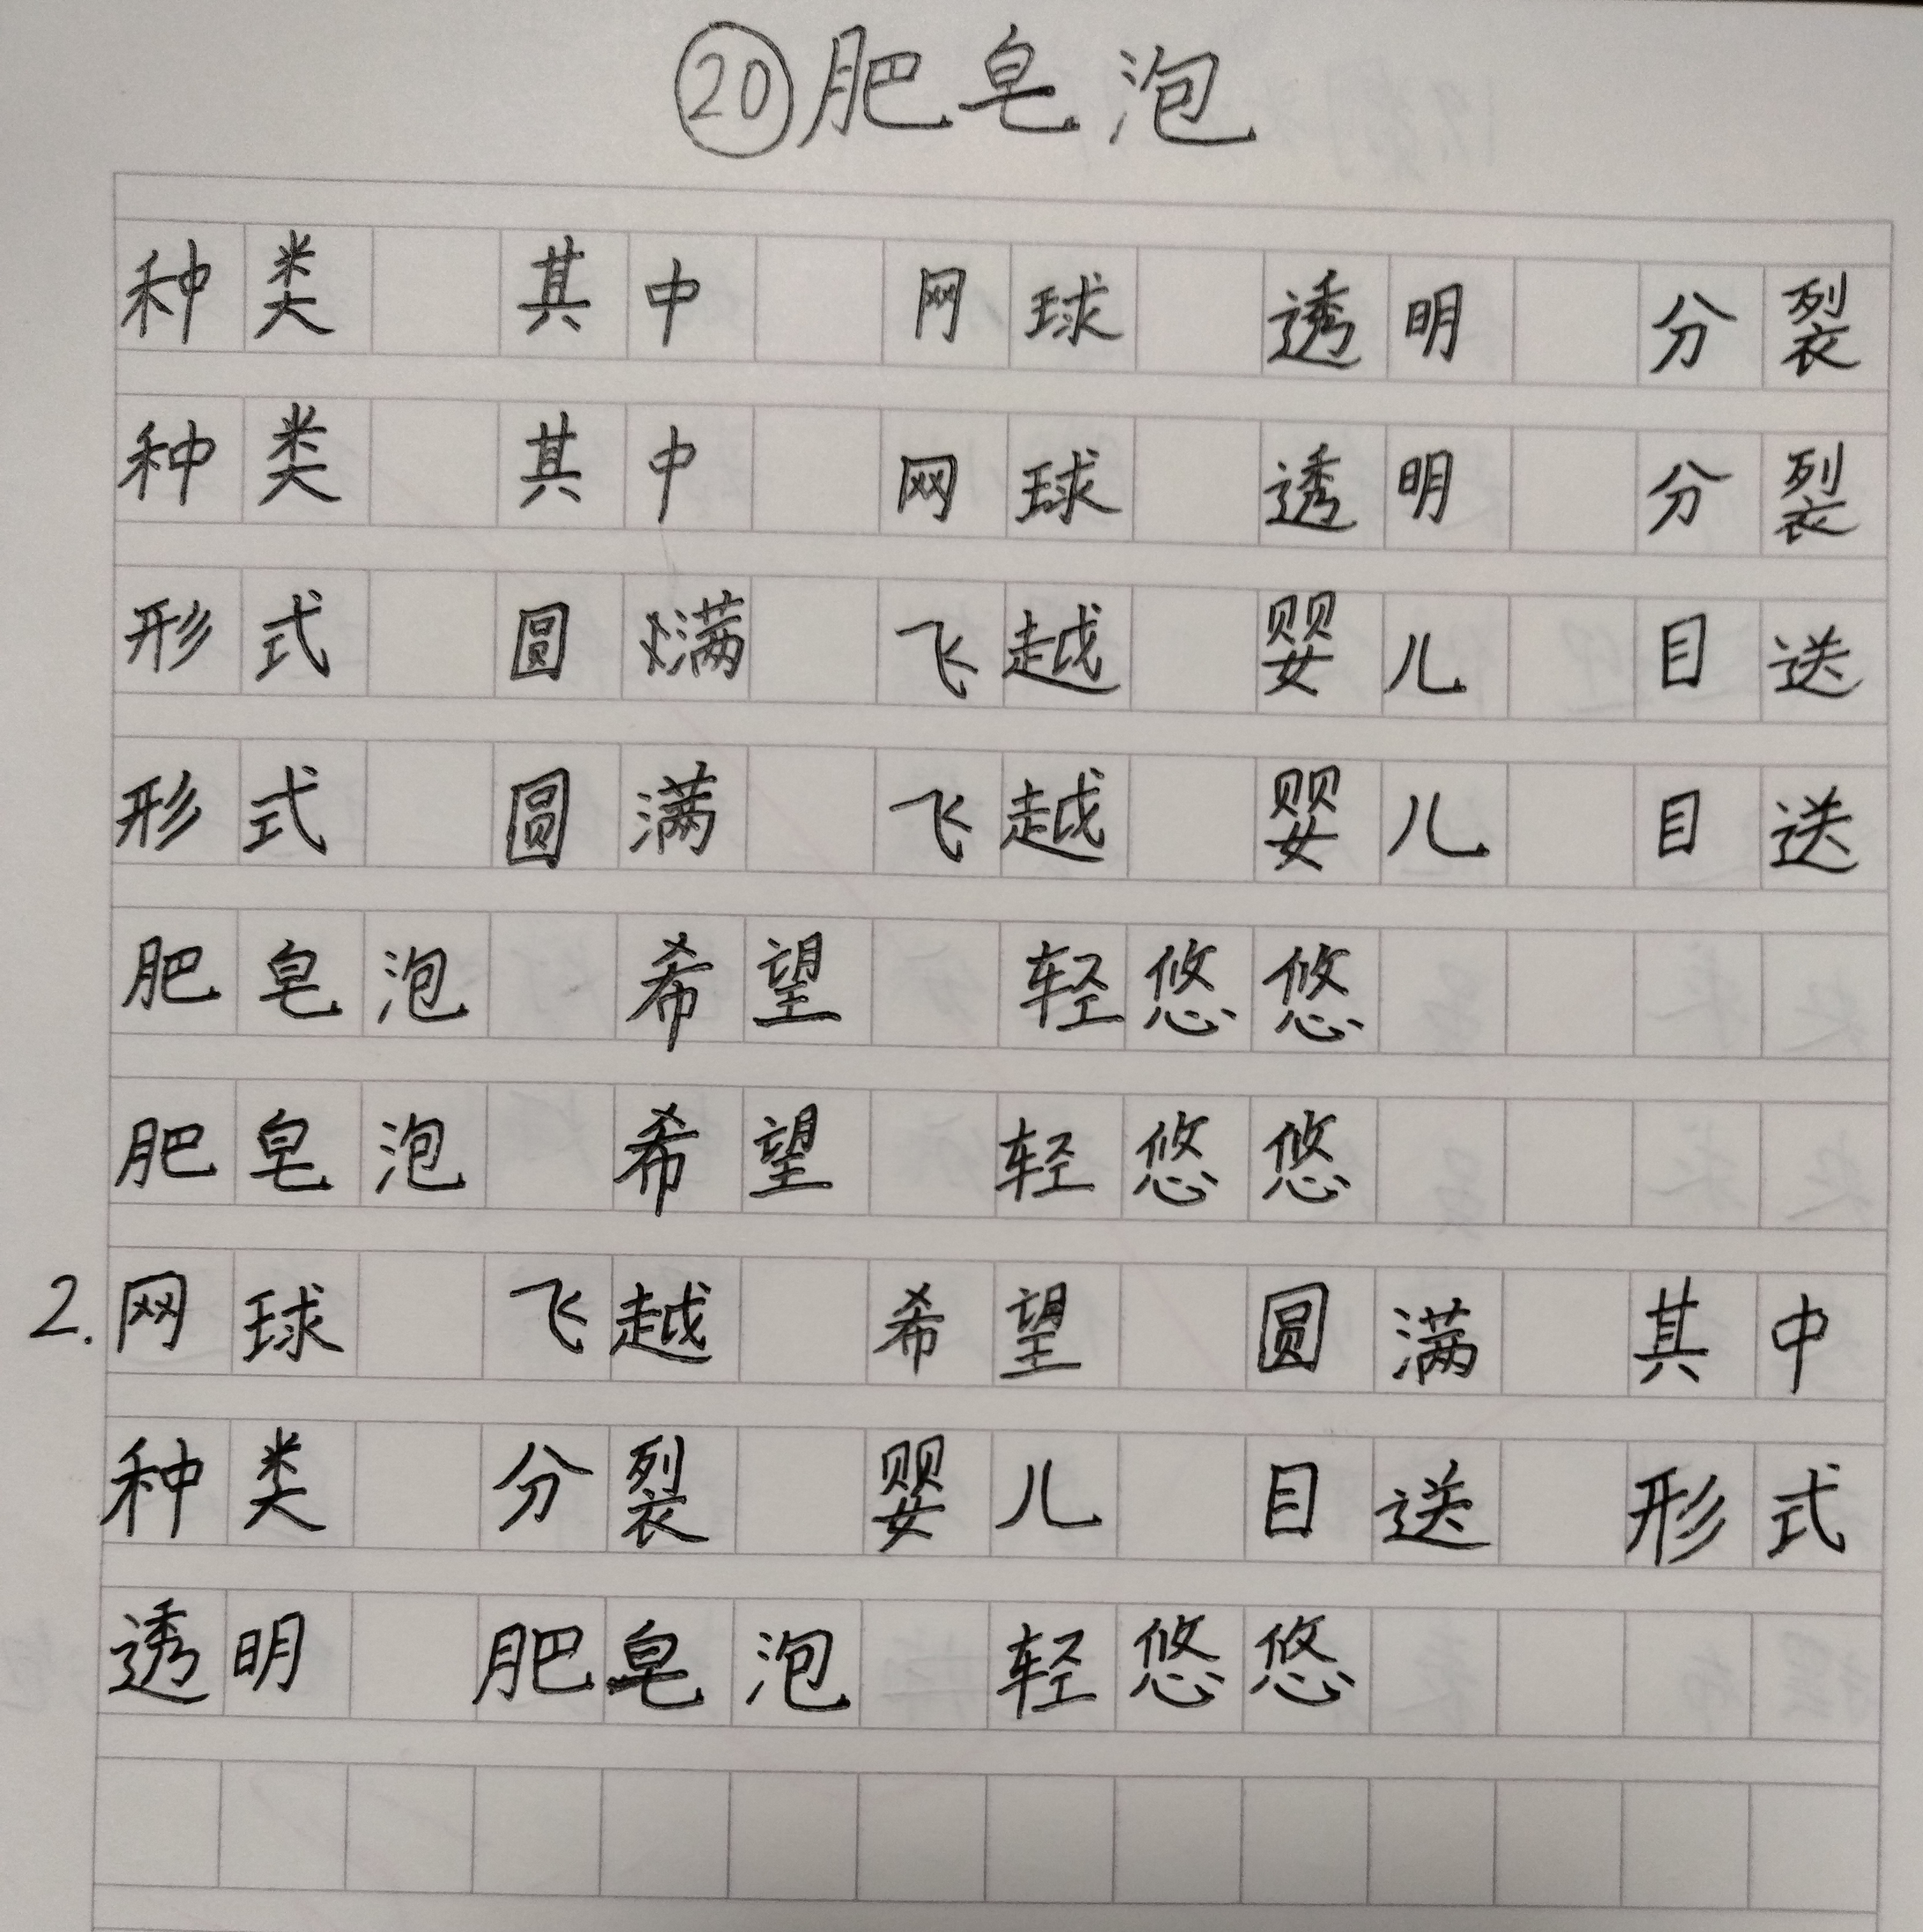 ⑳肥皂泡
种类 其中 网球 透明 分裂
种类 其中 网球 透明 分裂
形式 圆满 飞越 婴儿 目送
形式 圆满 飞越 婴儿 目送
肥皂泡 希望 轻悠悠
肥皂泡 希望 轻悠悠
2.网球 飞越 希望 圆满 其中
种类 分裂 婴儿 目送 形式
透明 肥皂泡 轻悠悠